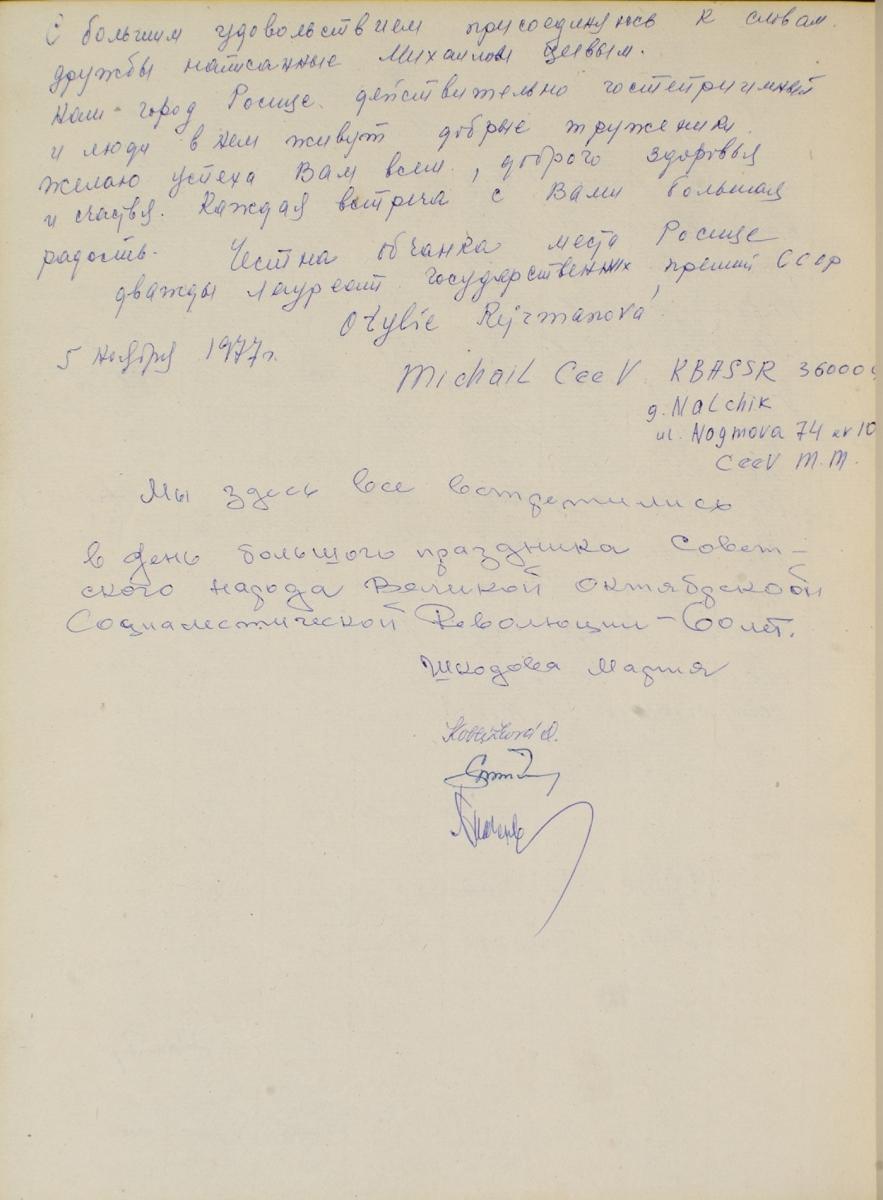 С большим удовольствием присоединяюсь к словам
дружбы написанные Михаилом Цеевым.
Наш город Росице действительно гостеприимный
и люди в нем живут добрые труженики.
Желаю успеха Вам всем, доброго здоровья
и счастья. Каждая встреча с Вами большая
радость. Честна обчанка места Росице
дважды лауреат государственных премий СССР
Otylie Rejzmanová
5 ноября 1977г.
Michail Ceev KBASSR 36000
g. Nalchik
ul. Nogmova 74 kv 10
Ceev M.M.
Мы здесь все встретились
в день большого праздника Совет-
ского народа Великой Октябрской
Социалистической Революции - 60 лет.
Шкодова Мария